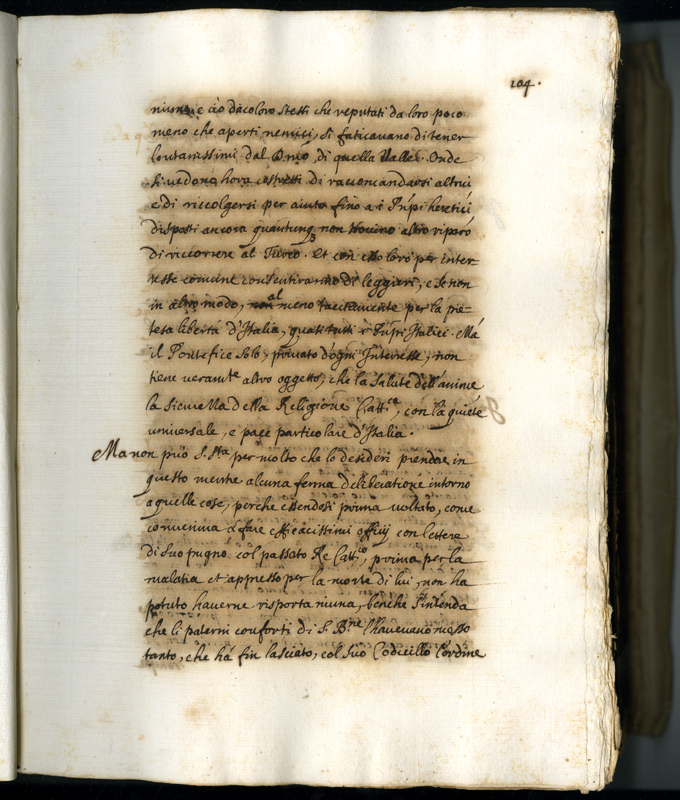 104.
niuna, e ciò da coloro stessi che reputati da loro poco
meno che aperti nemici, si faticavano di tener
lontanissimi dal Dnio, di quella Valle. Onde
si vedono hora costretti di raccomandarsi altrui
e di riccolgersi per aiuto fino a i Prñpi heretici
disposti ancora quantunq3 non trovino altro riparo
di riccorrere al Turco. Et con esso loro per inter-
resse comune consentiranno di leggieri, e se non
in altro modo, al meno tacitamente per la pre=
tesa libertà d'Italia, quasi tutti i Prñpi Italici. Mà
il Pontefice solo, privato d'ogni Interesse, non
tiene veramte altro oggetto, che la salute dell'anime
la sicurezza della Religione Cattca, con la quiete
universale, e pace particolare d'Italia.
Ma non può S. Sta per molto che lo desideri prendere in
questo mentre alcuna ferma deliberatione intorno
a quelle cose, perche essendosi prima voltato, come
conveniva à fare efficacissimi offitij con lettere
di suo pugno col passato Re Cattco, prima per la
malatia et appresso per la morte di lui, non ha
potuto haverne risposta niuna, benche s'intenda
che li paterni conforti di S. Bne l'havevano mosso
tanto, che hà fin lasciato, col suo Codicillo l'ordine